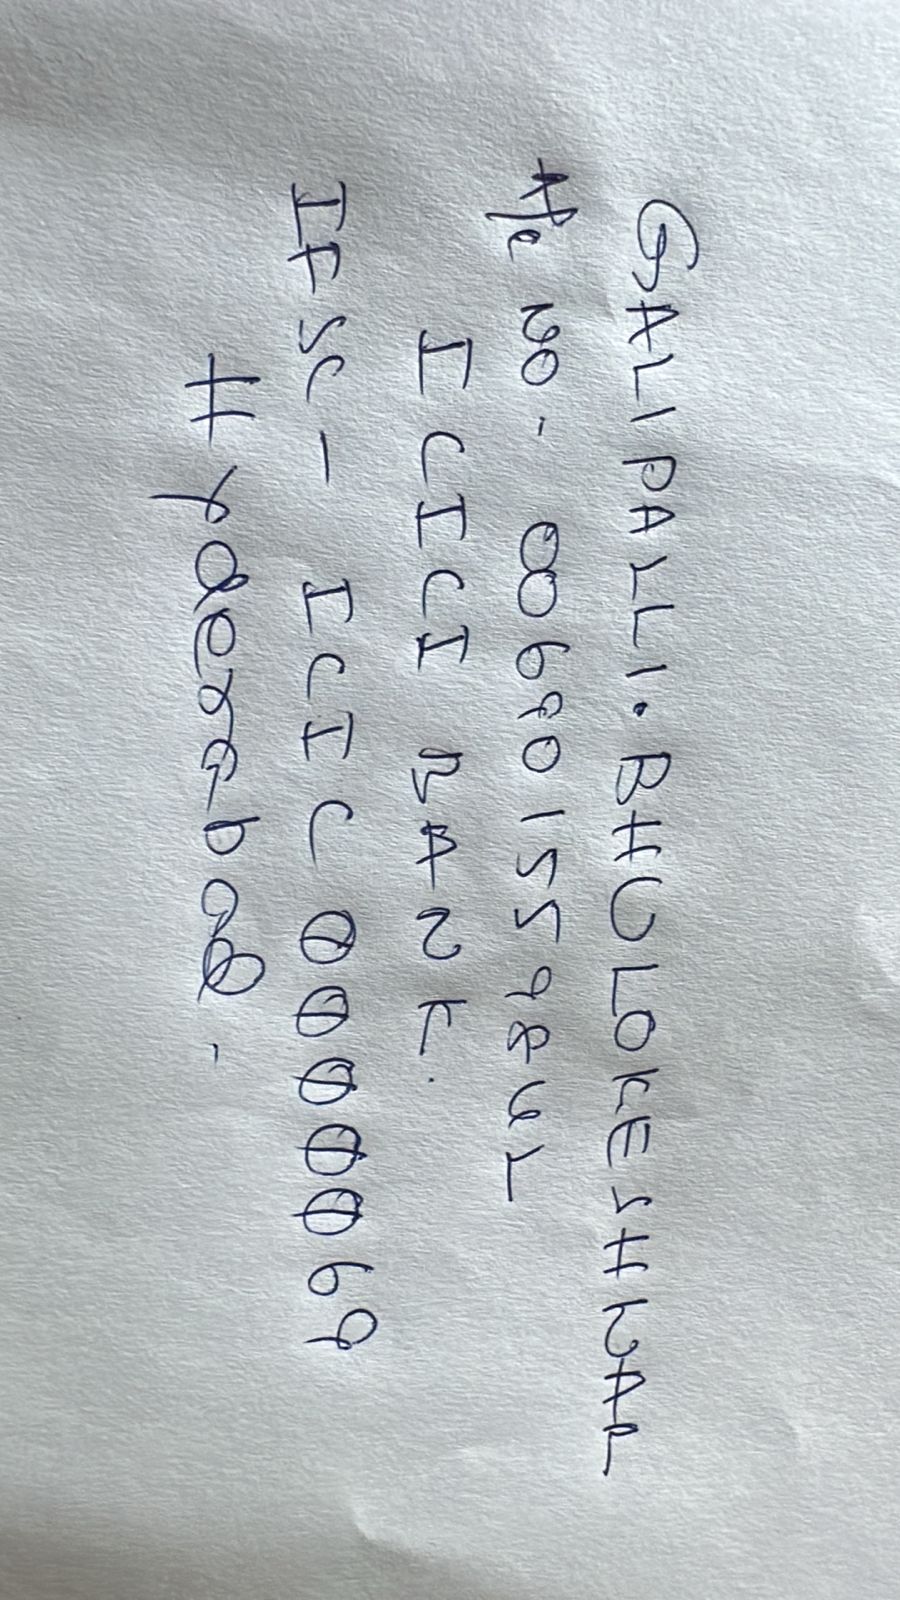 GALIPALLI. BHULOKESHWAR
A/c NO- 006901559842
ICICI BANK.
IFSC- ICIC0000069
Hyderabad.